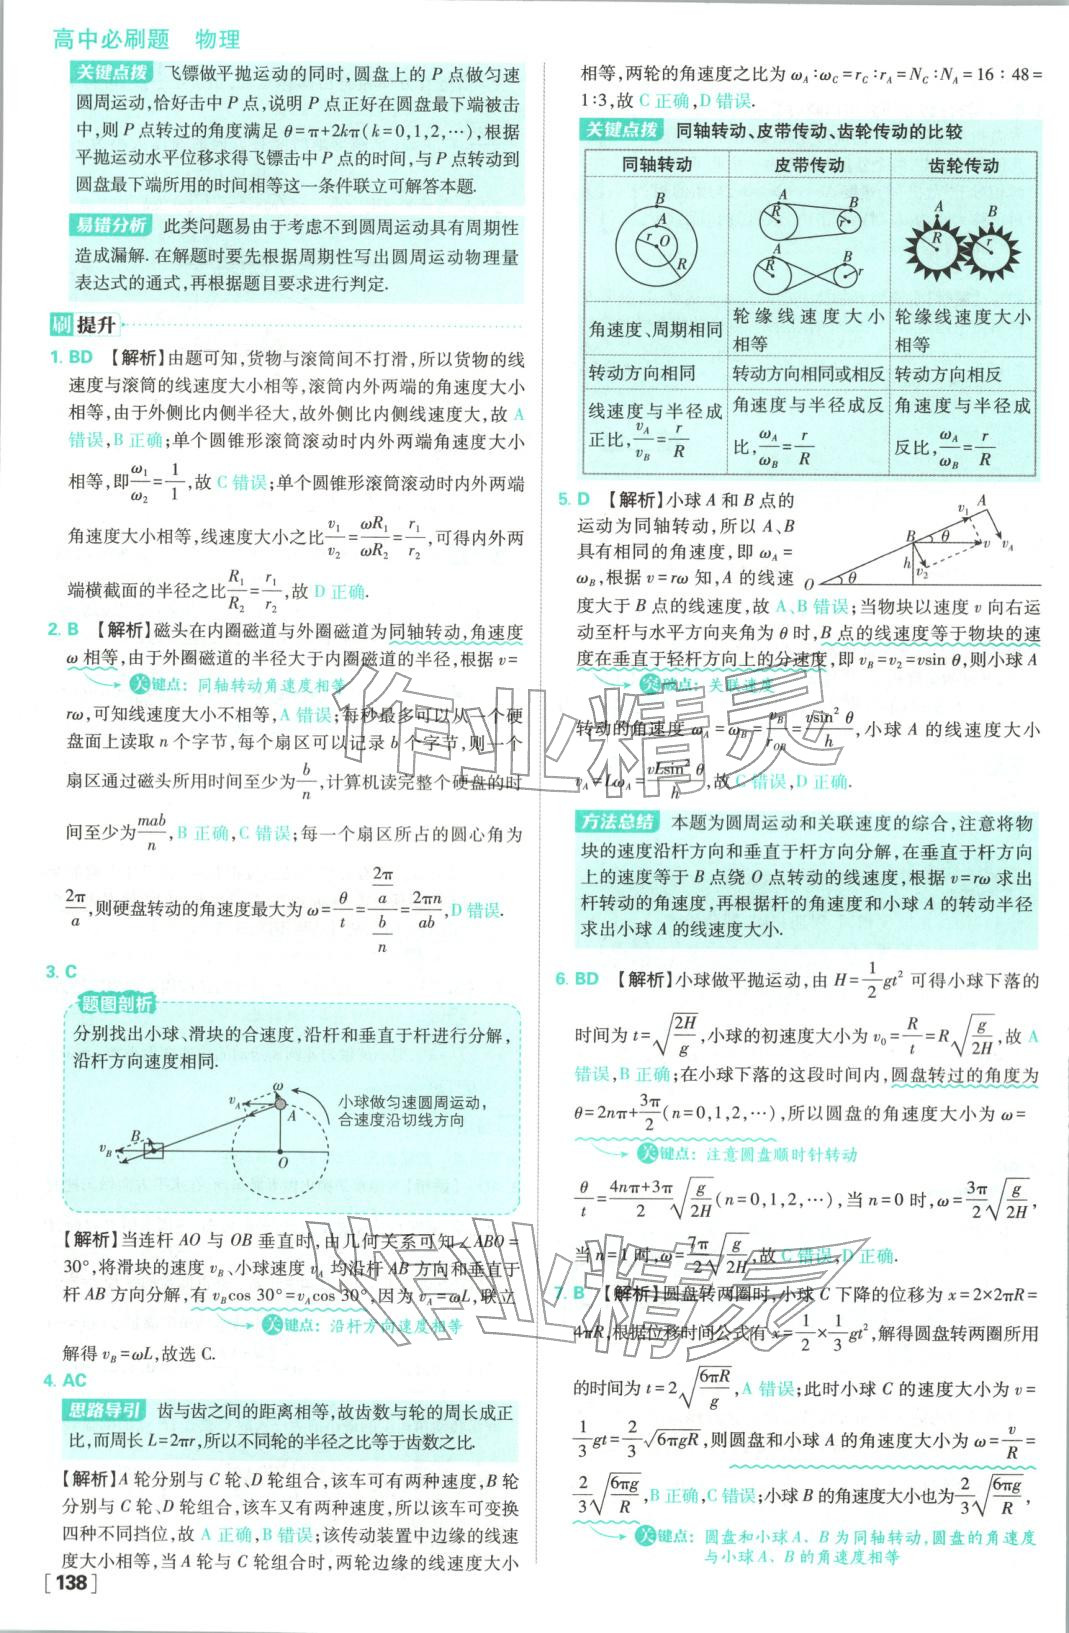 高中必刷题 物理
关键点拨 飞镖做平抛运动的同时,圆盘上的 P 点做匀速
圆周运动,恰好击中 P 点,说明 P 点正好在圆盘最下端被击
中,则 P 点转过的角度满足 θ=π+2kπ(k=0,1,2,…),根据
平抛运动水平位移求得飞镖击中 P 点的时间,与 P 点转动到
圆盘最下端所用的时间相等这一条件联立可解答本题.
易错分析 此类问题易由于考虑不到圆周运动具有周期性
造成漏解. 在解题时要先根据周期性写出圆周运动物理量
表达式的通式,再根据题目要求进行判定.
刷提升
1. BD 【解析】由题可知,货物与滚筒间不打滑,所以货物的线
速度与滚筒的线速度大小相等,滚筒内外两端的角速度大小
相等,由于外侧比内侧半径大,故外侧比内侧线速度大,故 A
错误,B 正确;单个圆锥形滚筒滚动时内外两端角速度大小
相等,即ω₁/ω₂=1/1,故 C 错误;单个圆锥形滚筒滚动时内外两端
角速度大小相等,线速度大小之比v₁/v₂=ωR₁/ωR₂=r₁/r₂,可得内外两
端横截面的半径之比R₁/R₂=r₁/r₂,故 D 正确.
2. B 【解析】磁头在内圈磁道与外圈磁道为同轴转动,角速度
ω 相等,由于外圈磁道的半径大于内圈磁道的半径,根据 v=
关键点:同轴转动角速度相等
rω,可知线速度大小不相等,A 错误;每秒最多可以从一个硬
盘面上读取 n 个字节,每个扇区可以记录 b 个字节,则一个
扇区通过磁头所用时间至少为b/n,计算机读完整个硬盘的时
间至少为mab/n,B 正确,C 错误;每一个扇区所占的圆心角为
2π/a,则硬盘转动的角速度最大为 ω=θ/t=(2π/a)/(b/n)=2πn/ab,D 错误.
3. C
题图剖析
分别找出小球、滑块的合速度,沿杆和垂直于杆进行分解,
沿杆方向速度相同.
ω
v_A
A
小球做匀速圆周运动,
合速度沿切线方向
B
v_B
O
【解析】当连杆 AO 与 OB 垂直时,由几何关系可知∠ABO=
30°,将滑块的速度 v_B、小球速度 v_A 均沿杆 AB 方向和垂直于
杆 AB 方向分解,有 v_Bcos 30°=v_Acos 30°,因为 v_A=ωL,联立
关键点:沿杆方向速度相等
解得 v_B=ωL,故选 C.
4. AC
思路导引 齿与齿之间的距离相等,故齿数与轮的周长成正
比,而周长 L=2πr,所以不同轮的半径之比等于齿数之比.
【解析】A 轮分别与 C 轮、D 轮组合,该车可有两种速度,B 轮
分别与 C 轮、D 轮组合,该车又有两种速度,所以该车可变换
四种不同挡位,故 A 正确,B 错误;该传动装置中边缘的线速
度大小相等,当 A 轮与 C 轮组合时,两轮边缘的线速度大小
[138]
相等,两轮的角速度之比为 ω_A∶ω_C=r_C∶r_A=N_C∶N_A=16∶48=
1∶3,故 C 正确,D 错误.
关键点拨 同轴转动、皮带传动、齿轮传动的比较
同轴转动 皮带传动 齿轮传动
B A r O R
A R B r A R B r
A R B r
角速度、周期相同 轮缘线速度大小相等 轮缘线速度大小相等
转动方向相同 转动方向相同或相反 转动方向相反
线速度与半径成正比,v_A/v_B=r/R 角速度与半径成反比,ω_A/ω_B=r/R 角速度与半径成反比,ω_A/ω_B=r/R
5. D 【解析】小球 A 和 B 点的
运动为同轴转动,所以 A、B
具有相同的角速度,即 ω_A=
ω_B,根据 v=rω 知,A 的线速
v₁ A B θ v v_A h v₂ O θ
度大于 B 点的线速度,故 A、B 错误;当物块以速度 v 向右运
动至杆与水平方向夹角为 θ 时,B 点的线速度等于物块的速
度在垂直于轻杆方向上的分速度,即 v_B=v₂=vsin θ,则小球 A
突破点:关联速度
转动的角速度 ω_A=ω_B=v_B/r_OB=vsin² θ/h,小球 A 的线速度大小
v_A=Lω_A=vLsin² θ/h,故 C 错误,D 正确.
方法总结 本题为圆周运动和关联速度的综合,注意将物
块的速度沿杆方向和垂直于杆方向分解,在垂直于杆方向
上的速度等于 B 点绕 O 点转动的线速度,根据 v=rω 求出
杆转动的角速度,再根据杆的角速度和小球 A 的转动半径
求出小球 A 的线速度大小.
6. BD 【解析】小球做平抛运动,由 H=1/2gt² 可得小球下落的
时间为 t=√(2H/g),小球的初速度大小为 v₀=R/t=R√(g/2H),故 A
错误,B 正确;在小球下落的这段时间内,圆盘转过的角度为
θ=2nπ+3π/2(n=0,1,2,…),所以圆盘的角速度大小为 ω=
关键点:注意圆盘顺时针转动
θ/t=(4nπ+3π)/2√(g/2H)(n=0,1,2,…),当 n=0 时,ω=3π/2√(g/2H),
当 n=1 时,ω=7π/2√(g/2H),故 C 错误,D 正确.
7. B 【解析】圆盘转两圈时,小球 C 下降的位移为 x=2×2πR=
4πR,根据位移时间公式有 x=1/2×1/3gt²,解得圆盘转两圈所用
的时间为 t=2√(6πR/g),A 错误;此时小球 C 的速度大小为 v=
1/3gt=2/3√(6πgR),则圆盘和小球 A 的角速度大小为 ω=v/R=
2/3√(6πg/R),B 正确,C 错误;小球 B 的角速度大小也为2/3√(6πg/R),
关键点:圆盘和小球 A、B 为同轴转动,圆盘的角速度
与小球 A、B 的角速度相等
作业精灵
作业精灵